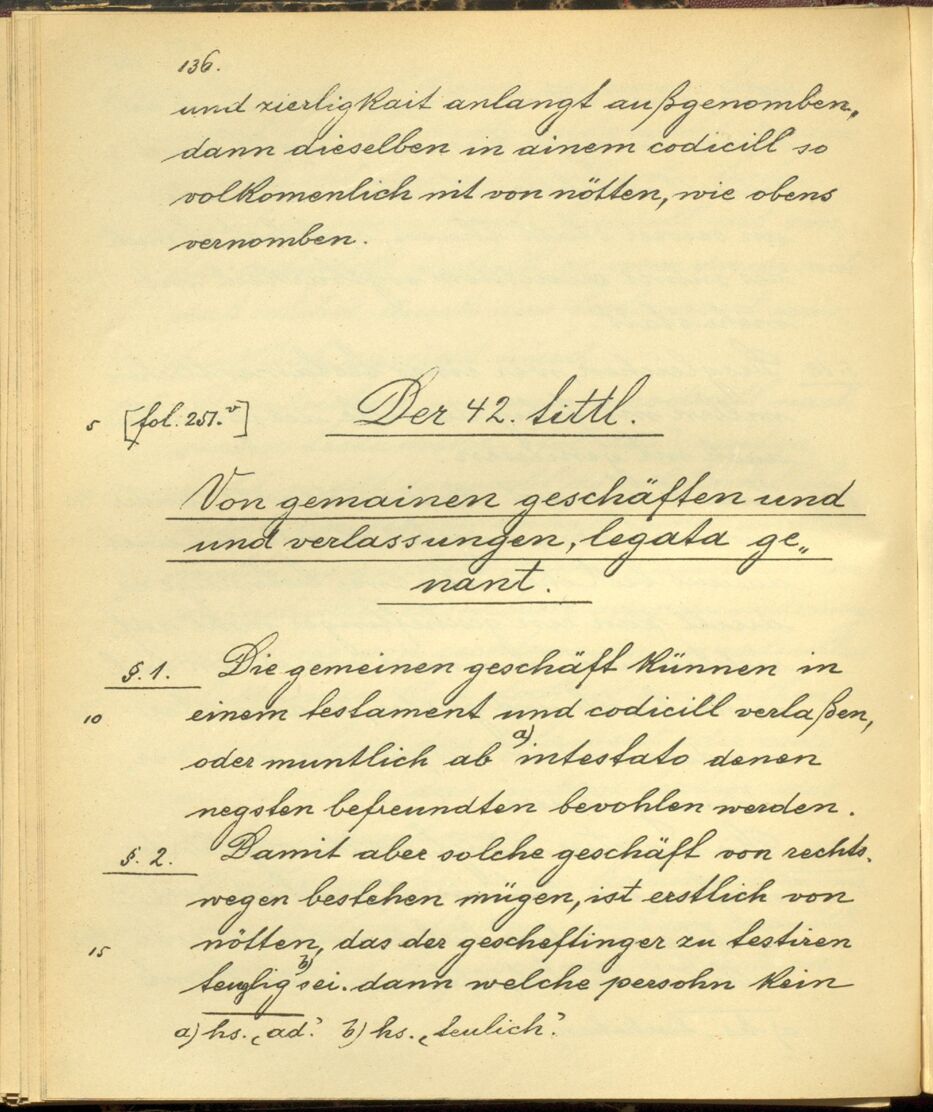 136.
und zierligkait anlangt außgenomben,
dann dieselben in ainem codicill so
volkomenlich nit von nötten, wie obens
vernomben.
5 [fol. 251.v] Der 42. tittl.
Von gemainen geschäften und
und verlassungen, legata ge„
nant.
§. 1. Die gemeinen geschäft künnen in
10 einem testament und codicill verlaßen,
oder muntlich ab a) intestato denen
negsten befreundten bevohlen werden.
§. 2. Damit aber solche geschäft von rechts-
wegen bestehen mügen, ist erstlich von
15 nötten, das der gescheftinger zu testiren
teuglig b) sei. dann welche persohn kein
a) hs. „ad“. b) hs. „teulich“.